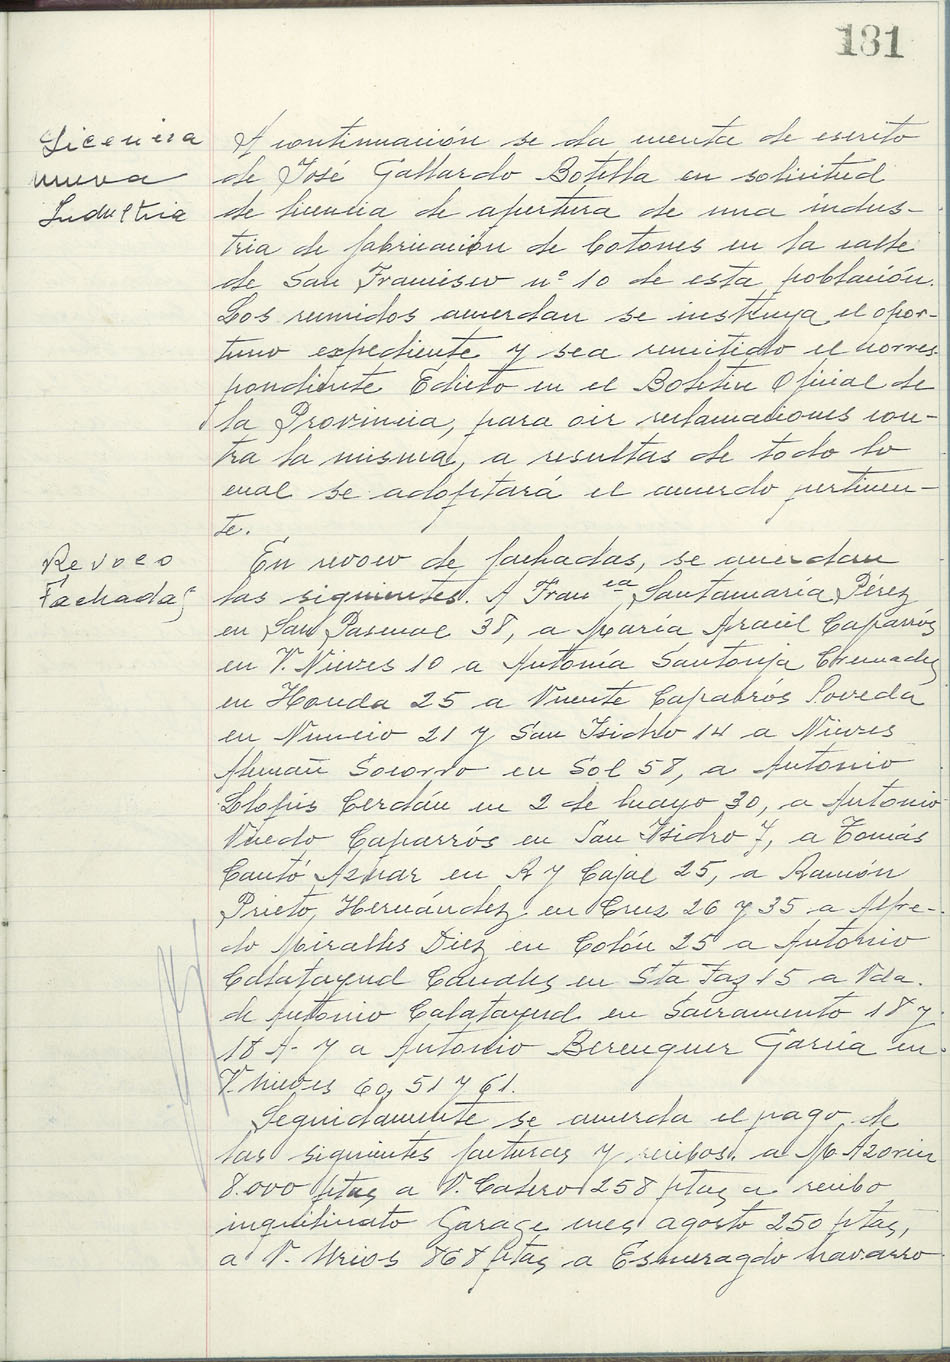 181
Licencia
nueva
Industria
A continuación se da cuenta de escrito
de José Gallardo Botella en solicitud
de licencia de apertura de una indus-
tria de fabricación de Cotones en la calle
de San Francisco nº 10 de esta población.
Los reunidos acuerdan se instruya el opor-
tuno expediente y sea remitido el corres
pondiente Edicto en el Boletín Oficial de
la Provincia, para oir reclamaciones con-
tra la misma, a resultas de todo lo
cual se adoptará el acuerdo pertinen-
te.
Revoco
Fachadas
En revoco de fachadas, se acuerdan
las siguientes. A Franca Santamaría Pérez
en San Pascual 38, a María Aracil Caparrós
en V. Nieves 10 a Antonía Santonja
en Honda 25 a Vicente Caparrós Poveda
en Nuncio 21 y San Isidro 14 a Nieves
Alemañ Socorro en Sol 58, a Antonio
Llopis Cerdán en 2 de mayo 30, a Antonio
Caparrós en San Isidro 7, a Tomás
Cantó Aznar en R y Cajal 25, a Ramón
Prieto Hernández en Cruz 26 y 35 a Alfre-
do Miralles Diez en Colón 25 a Antonio
Calatayud Canales en Sta Faz 15 a Vda.
de Antonio Calatayud en Sacramento 18 y
18 A- y a Antonio Berenguer García en
V. nieves 60, 51 y 61.
Seguidamente se acuerda el pago de
las siguientes facturas y recibos. a M. Azorin
8.000 ptas a V. Catero 258 ptas a recibo
inquilinato Garage mes agosto 250 ptas,
a V. Urios 868 ptas a Esmeragdo navarro